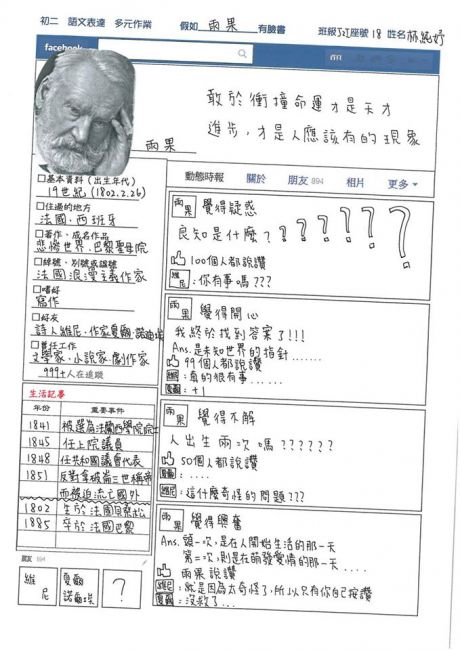 初二 語文表達 多元作業 假如 雨果 有臉書 班級 座號 18 姓名
facebook
敢於衝撞命運才是天才
進步，才是人應該有的現象
雨果
動態時報 關於 朋友 894 相片 更多
□基本資料(出生年代)
19世紀(1802.2.26)
□住過的地方
法國、西班牙
□著作、成名作品
悲慘世界、巴黎聖母院
□綽號、別號或諡號
法國浪漫主義作家
□嗜好
寫作
□好友
詩人維尼、作家夏爾.諾迪埃
□責任工作
文學家、小說家、劇作家
999+人在追蹤
生活記事
年份 重要事件
1841 被選為法蘭西學院院士
1845 任上院議員
1848 任共和國議會代表
1851 反對拿破崙三世稱帝
而被迫流亡國外
1802 生於法國貝桑松
1885 卒於法國巴黎
朋友 894
維尼
夏爾諾迪埃
?
雨果 覺得疑惑
良知是什麼????????
100個人都說讚
維尼:你有事嗎???
雨果 覺得開心
我終於找到答案了!!!
Ans.是未知世界的指針......
99個人都說讚
維尼:真的很有事......
夏爾:+1
雨果 覺得不解
人出生兩次嗎??????
50個人都說讚
夏爾:....
維尼:這什麼奇怪的問題???
雨果 覺得興奮
Ans.頭一次,是在人開始生活的那一天
第二次,則是在萌發愛情的那一天....
雨果說讚
維尼:就是因為太奇怪了,所以只有你自己按讚
夏爾:沒救了...